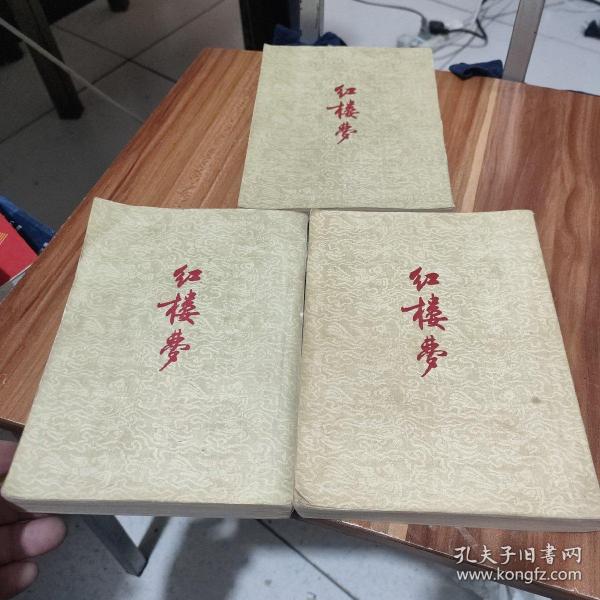 红楼梦
红楼梦
红楼梦
孔夫子旧书网
www.kongfz.com